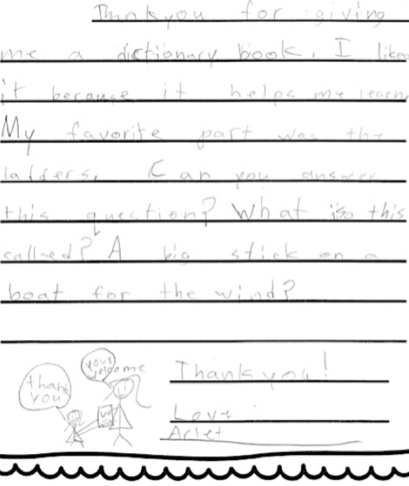 Thnkyou for giving
me a dictionary book. I like
it because it helps me learn
My favorite part was the
ladders. Can you answer
this question? What is this
called? A big stick on a
boat for the wind?
thank you
your welcome
Thank you!
Love
Arlet